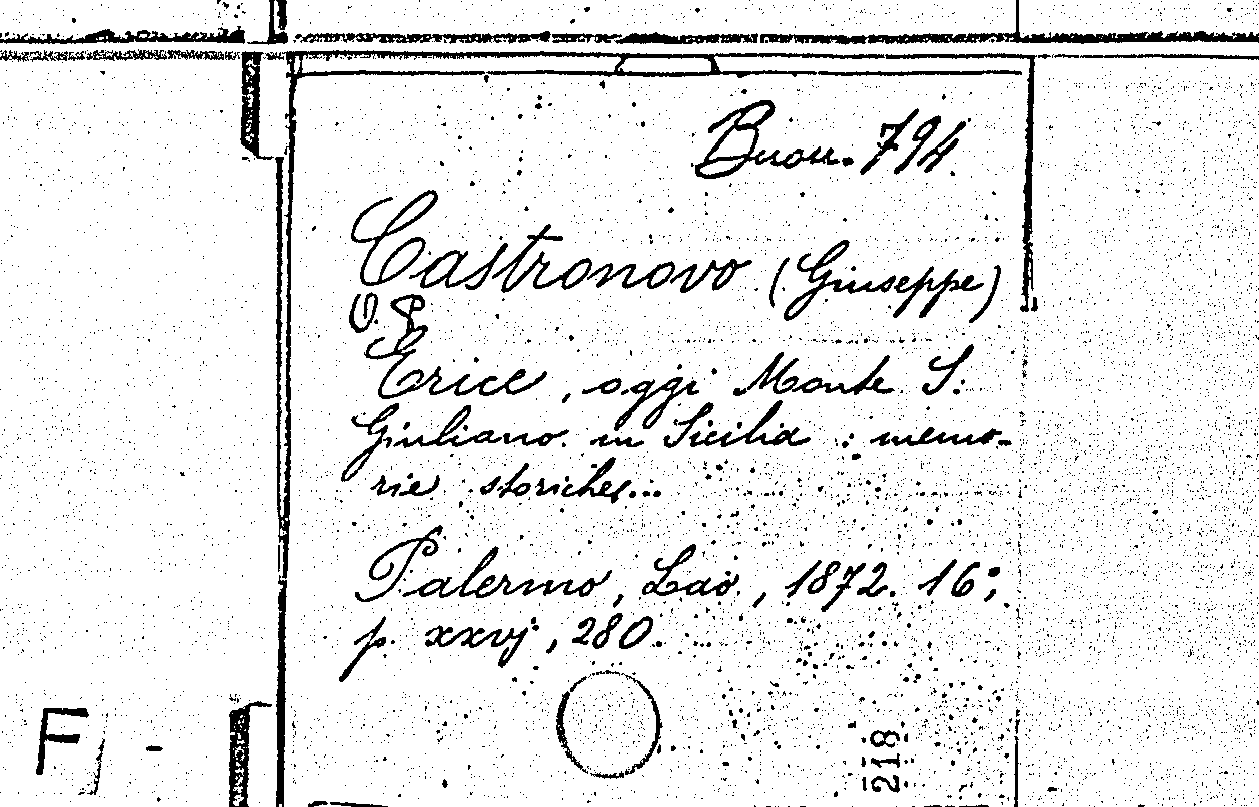 Buon. 794
Castronovo (Giuseppe)
O. P.
Erice, oggi Monte S.
Giuliano in Sicilia : memo-
rie storiche...
Palermo, Lao, 1872. 16°;
p. xxvj, 280.
218
F -